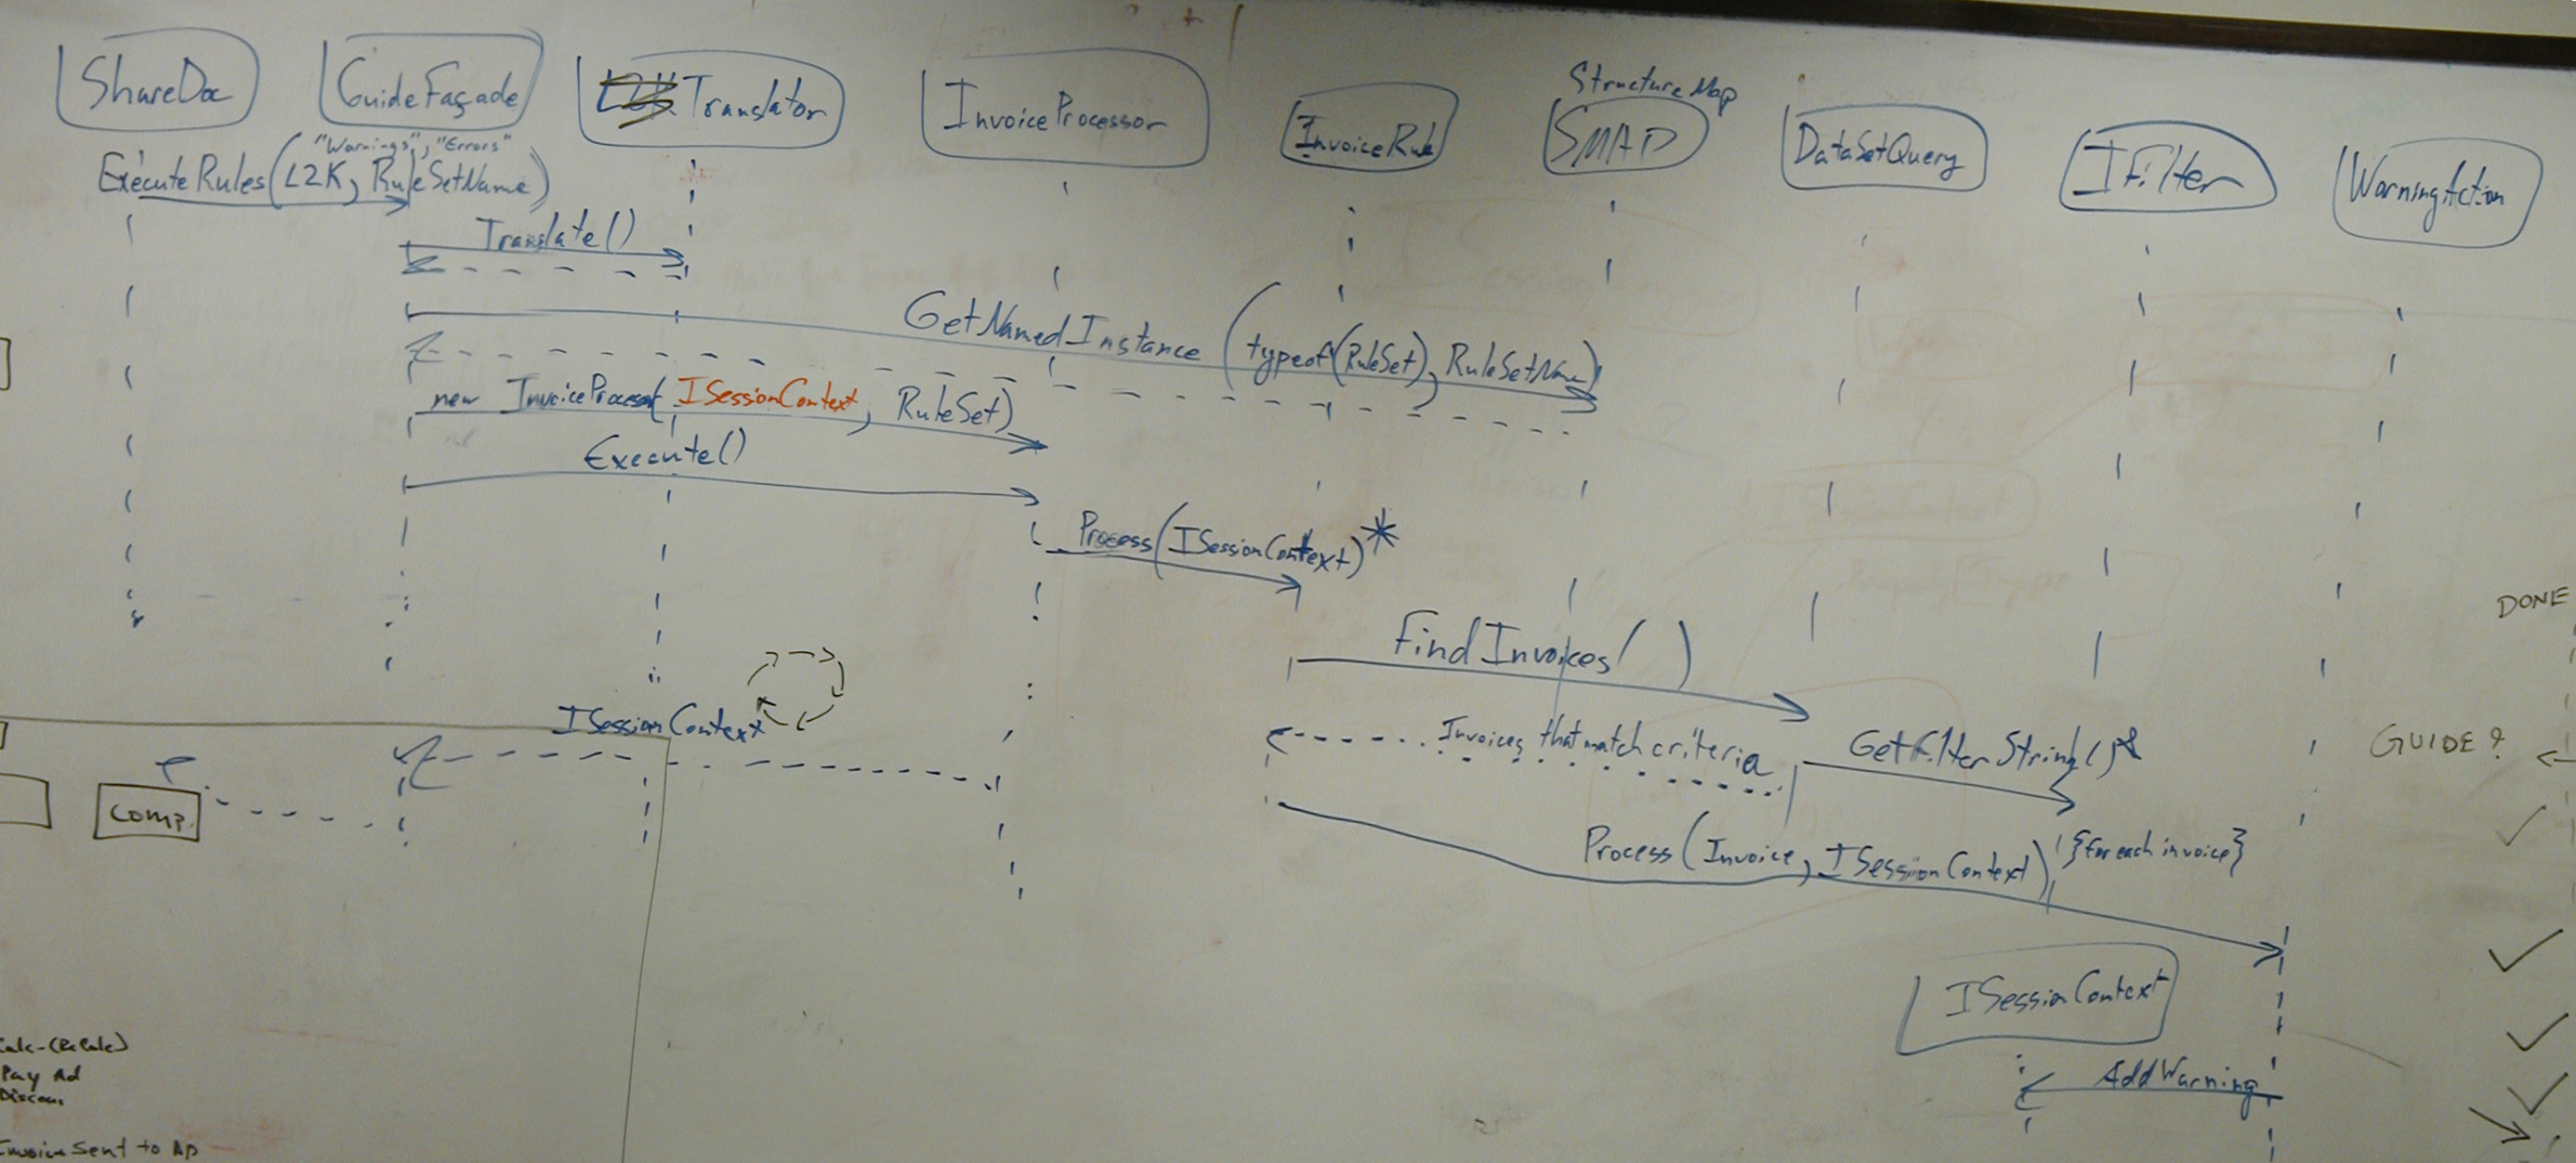 StructureMap
ShareDoc
GuideFaçade
Translator
InvoiceProcessor
InvoiceRule
SMAP
DataSetQuery
IFilter
WarningAction
"Warnings", "Errors"
ExecuteRules(L2K, RuleSetName)
Translate()
GetNamedInstance (typeof(RuleSet), RuleSetName)
new InvoiceProcessor(ISessionContext, RuleSet)
Execute()
Process(ISessionContext)*
FindInvoices( )
Invoices that match criteria
GetFilterString()*
ISessionContext
Comp.
Process(Invoice, ISessionContext) {for each invoice}
ISessionContext
AddWarning
DONE
GUIDE?
Pay Ad
Invoice Sent to AP